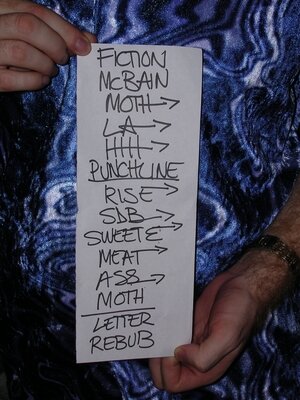 FICTION
McBAIN
MOTH →
LA →
HIH →
PUNCHLINE
RISE →
SDB →
SWEET E →
MEAT →
ASS →
MOTH
LETTER
REBUB